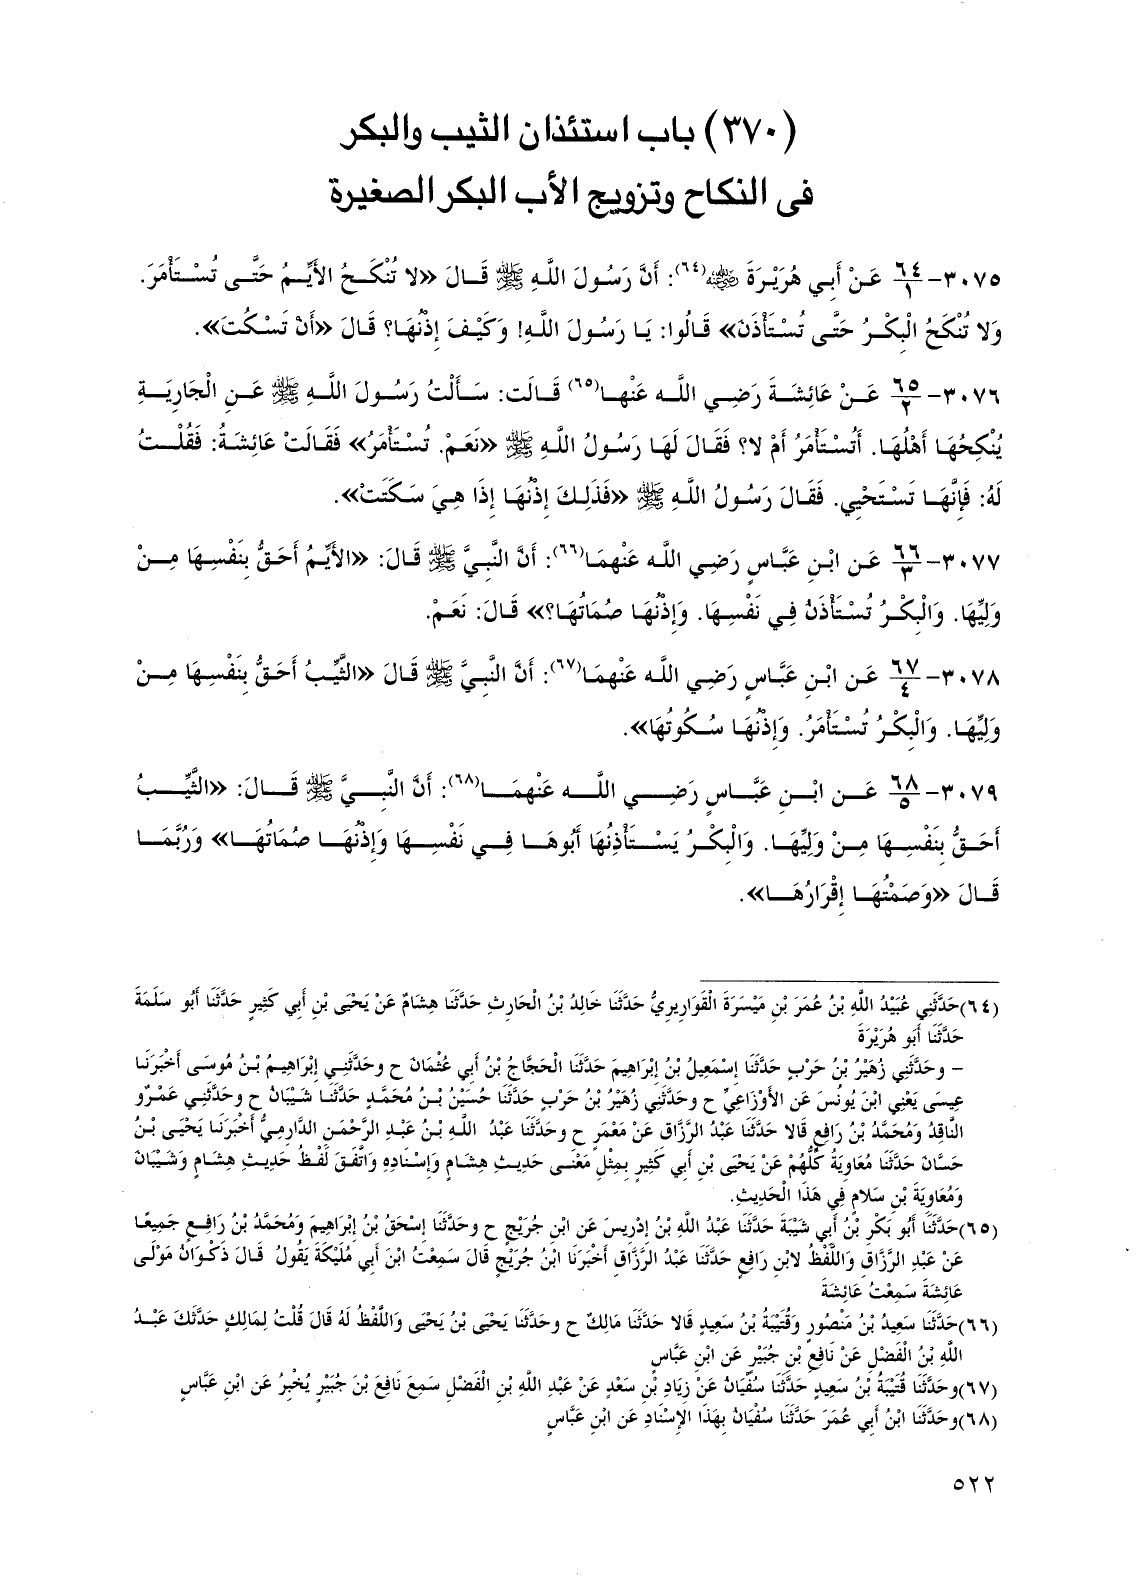 (٣٧٠) باب استئذان الثيب والبكر
فى النكاح وتزويج الأب البكر الصغيرة
٣٠٧٥- ٦٤/١ عَنْ أَبِي هُرَيْرَةَ رضي الله عنه(٦٤): أَنَّ رَسُولَ اللَّهِ ﷺ قَالَ «لا تُنْكَحُ الأَيِّمُ حَتَّى تُسْتَأْمَرَ.
وَلا تُنْكَحُ الْبِكْرُ حَتَّى تُسْتَأْذَنَ» قَالُوا: يَا رَسُولَ اللَّهِ! وَكَيْفَ إِذْنُهَا؟ قَالَ «أَنْ تَسْكُتَ».
٣٠٧٦- ٦٥/٢ عَنْ عَائِشَةَ رَضِي اللَّه عَنْهَا(٦٥) قَالَت: سَأَلْتُ رَسُولَ اللَّهِ ﷺ عَنِ الْجَارِيَةِ
يُنْكِحُهَا أَهْلُهَا. أَتُسْتَأْمَرُ أَمْ لا؟ فَقَالَ لَهَا رَسُولُ اللَّهِ ﷺ «نَعَمْ. تُسْتَأْمَرُ» فَقَالَتْ عَائِشَةُ: فَقُلْتُ
لَهُ: فَإِنَّهَا تَسْتَحْيِي. فَقَالَ رَسُولُ اللَّهِ ﷺ «فَذَلِكَ إِذْنُهَا إِذَا هِيَ سَكَتَتْ».
٣٠٧٧- ٦٦/٣ عَن ابْنِ عَبَّاسٍ رَضِي اللَّه عَنْهمَا(٦٦): أَنَّ النَّبِيَّ ﷺ قَالَ: «الأَيِّمُ أَحَقُّ بِنَفْسِهَا مِنْ
وَلِيِّهَا. وَالْبِكْرُ تُسْتَأْذَنُ فِي نَفْسِهَا. وَإِذْنُهَا صُمَاتُهَا؟» قَالَ: نَعَمْ.
٣٠٧٨- ٦٧/٤ عَن ابْنِ عَبَّاسٍ رَضِي اللَّه عَنْهمَا(٦٧): أَنَّ النَّبِيَّ ﷺ قَالَ «الثَّيِّبُ أَحَقُّ بِنَفْسِهَا مِنْ
وَلِيِّهَا. وَالْبِكْرُ تُسْتَأْمَرُ. وَإِذْنُهَا سُكُوتُهَا».
٣٠٧٩- ٦٨/٥ عَن ابْنِ عَبَّاسٍ رَضِي اللَّه عَنْهمَا(٦٨): أَنَّ النَّبِيَّ ﷺ قَالَ: «الثَّيِّبُ
أَحَقُّ بِنَفْسِهَا مِنْ وَلِيِّهَا. وَالْبِكْرُ يَسْتَأْذِنُهَا أَبُوهَا فِي نَفْسِهَا وَإِذْنُهَا صُمَاتُهَا» وَرُبَّمَا
قَالَ «وَصَمْتُهَا إِقْرَارُهَا».
(٦٤)حَدَّثَنِي عُبَيْدُ اللَّهِ بْنُ عُمَرَ بْنِ مَيْسَرَةَ الْقَوَارِيرِيُّ حَدَّثَنَا خَالِدُ بْنُ الْحَارِثِ حَدَّثَنَا هِشَامٌ عَنْ يَحْيَى بْنِ أَبِي كَثِيرٍ حَدَّثَنَا أَبُو سَلَمَةَ
حَدَّثَنَا أَبُو هُرَيْرَةَ
– وحَدَّثَنِي زُهَيْرُ بْنُ حَرْبٍ حَدَّثَنَا إِسْمَعِيلُ بْنُ إِبْرَاهِيمَ حَدَّثَنَا الْحَجَّاجُ بْنُ أَبِي عُثْمَانَ ح وحَدَّثَنِي إِبْرَاهِيمُ بْنُ مُوسَى أَخْبَرَنَا
عِيسَى يَعْنِي ابْنَ يُونُسَ عَنِ الأَوْزَاعِيِّ ح وحَدَّثَنِي زُهَيْرُ بْنُ حَرْبٍ حَدَّثَنَا حُسَيْنُ بْنُ مُحَمَّدٍ حَدَّثَنَا شَيْبَانُ ح وحَدَّثَنِي عَمْرٌو
النَّاقِدُ وَمُحَمَّدُ بْنُ رَافِعٍ قَالا حَدَّثَنَا عَبْدُ الرَّزَّاقِ عَنْ مَعْمَرٍ ح وحَدَّثَنَا عَبْدُ اللَّهِ بْنُ عَبْدِ الرَّحْمَنِ الدَّارِمِيُّ أَخْبَرَنَا يَحْيَى بْنُ
حَسَّانَ حَدَّثَنَا مُعَاوِيَةُ كُلُّهُمْ عَنْ يَحْيَى بْنِ أَبِي كَثِيرٍ بِمِثْلِ مَعْنَى حَدِيثِ هِشَامٍ وَإِسْنَادِهِ وَاتَّفَقَ لَفْظُ حَدِيثِ هِشَامٍ وَشَيْبَانَ
وَمُعَاوِيَةَ بْنِ سَلامٍ فِي هَذَا الْحَدِيثِ.
(٦٥)حَدَّثَنَا أَبُو بَكْرِ بْنُ أَبِي شَيْبَةَ حَدَّثَنَا عَبْدُ اللَّهِ بْنُ إِدْرِيسَ عَنِ ابْنِ جُرَيْجٍ ح وحَدَّثَنَا إِسْحَقُ بْنُ إِبْرَاهِيمَ وَمُحَمَّدُ بْنُ رَافِعٍ جَمِيعًا
عَنْ عَبْدِ الرَّزَّاقِ وَاللَّفْظُ لابْنِ رَافِعٍ حَدَّثَنَا عَبْدُ الرَّزَّاقِ أَخْبَرَنَا ابْنُ جُرَيْجٍ قَالَ سَمِعْتُ ابْنَ أَبِي مُلَيْكَةَ يَقُولُ قَالَ ذَكْوَانُ مَوْلَى
عَائِشَةَ سَمِعْتُ عَائِشَةَ
(٦٦)حَدَّثَنَا سَعِيدُ بْنُ مَنْصُورٍ وَقُتَيْبَةُ بْنُ سَعِيدٍ قَالا حَدَّثَنَا مَالِكٌ ح وحَدَّثَنَا يَحْيَى بْنُ يَحْيَى وَاللَّفْظُ لَهُ قَالَ قُلْتُ لِمَالِكٍ حَدَّثَكَ عَبْدُ
اللَّهِ بْنُ الْفَضْلِ عَنْ نَافِعِ بْنِ جُبَيْرٍ عَنِ ابْنِ عَبَّاسٍ
(٦٧)وحَدَّثَنَا قُتَيْبَةُ بْنُ سَعِيدٍ حَدَّثَنَا سُفْيَانُ عَنْ زِيَادِ بْنِ سَعْدٍ عَنْ عَبْدِ اللَّهِ بْنِ الْفَضْلِ سَمِعَ نَافِعَ بْنَ جُبَيْرٍ يُخْبِرُ عَنِ ابْنِ عَبَّاسٍ
(٦٨)وحَدَّثَنَا ابْنُ أَبِي عُمَرَ حَدَّثَنَا سُفْيَانُ بِهَذَا الإِسْنَادِ عَنِ ابْنِ عَبَّاسٍ
٥٢٢